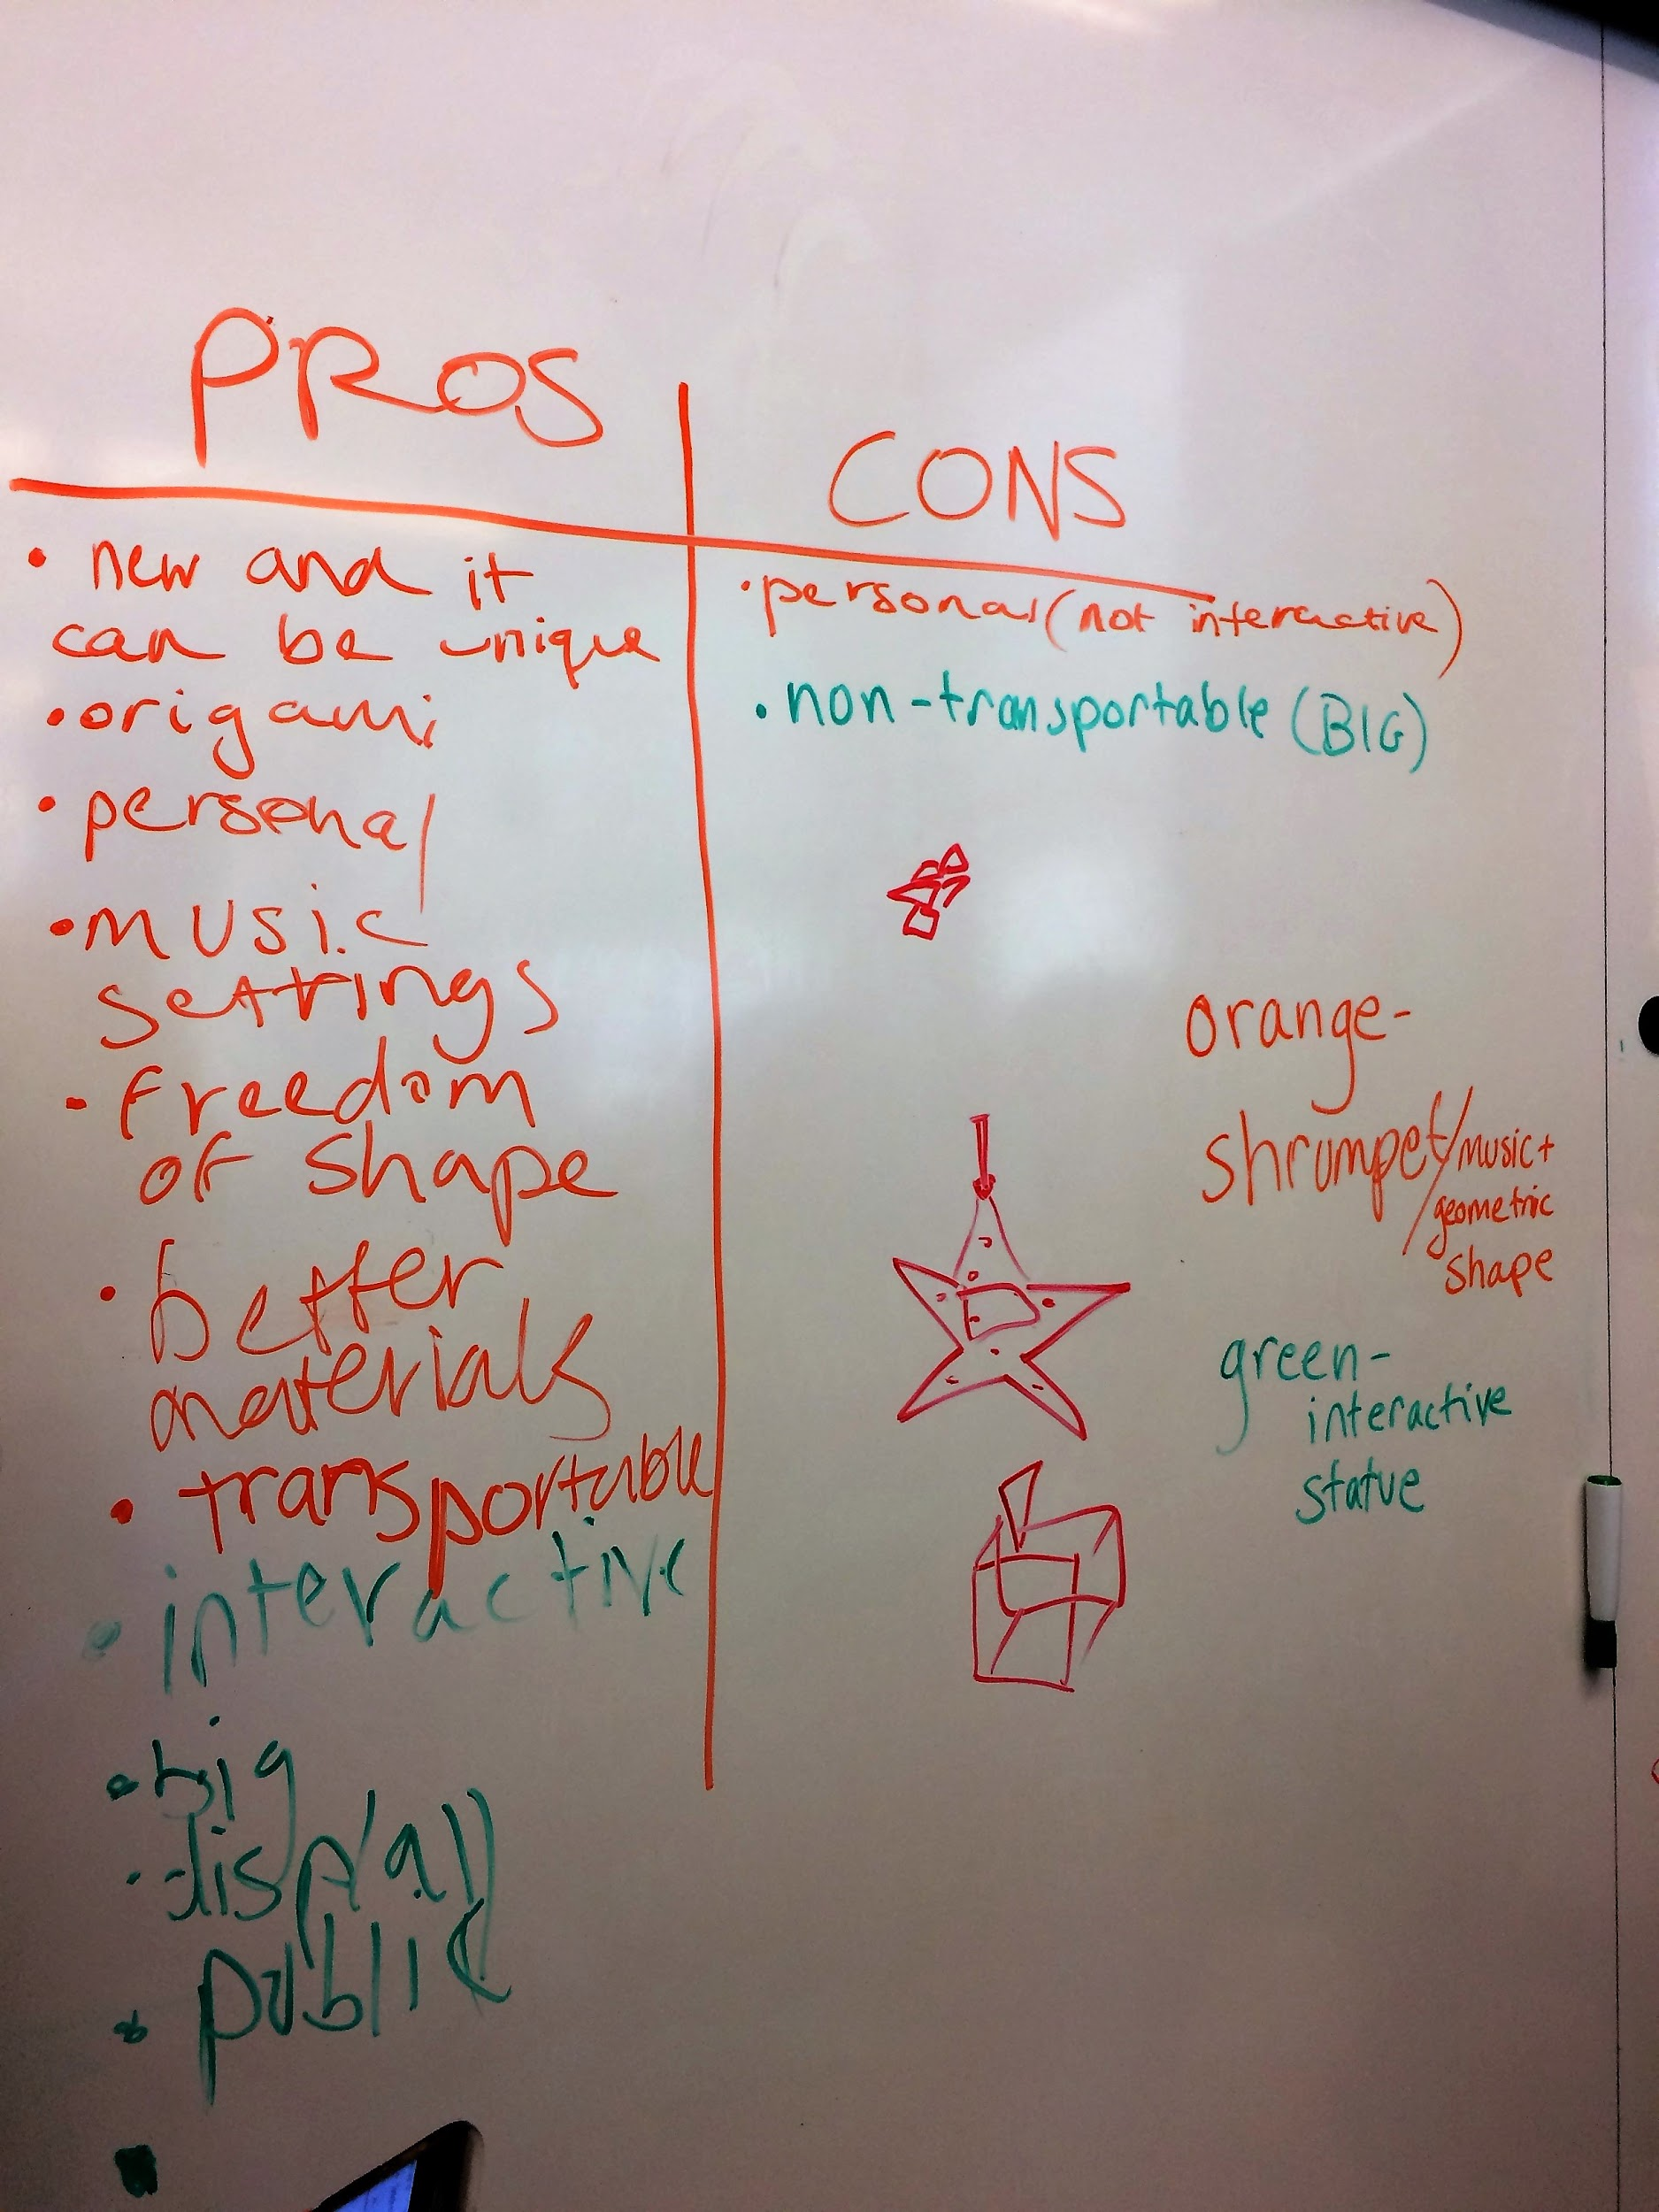 PROS
• new and it
can be unique
• origami
• personal
• music
settings
• freedom
of shape
• better
materials
• transportable
• interactive
• big
• display
• public
CONS
• personal (not interactive)
• non-transportable (BIG)
orange-
shrumpet/music+
geometric
shape
green-
interactive
statue